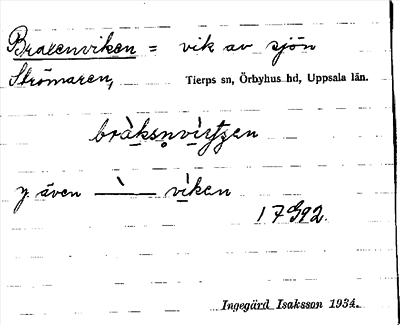 Braxenviken = vik av sjön
Strömaren, Tierps sn, Örbyhus hd, Uppsala län.
även viken
Ingegärd Isaksson 1934.